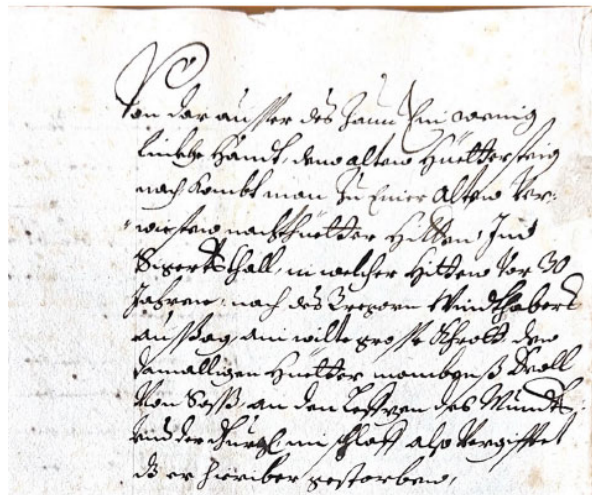 Von dar ausser des Zaun Ein wenig
linckhe Handt, denn alten Hüettersteig
nach kombt man zu Einer Alten Ver-
wiesten nachthüetter Hitten, Ins
thall, in welcher Hitten vor 30
Jahren, nach des Windthabers
aussag, ain wilte grosse Khrott den
damalligen Hüetter nambens Troll
Von an den Lefzen des Mundts,
Vnd der im schlaff also Vergifftet
ds er hieriber gestorben,